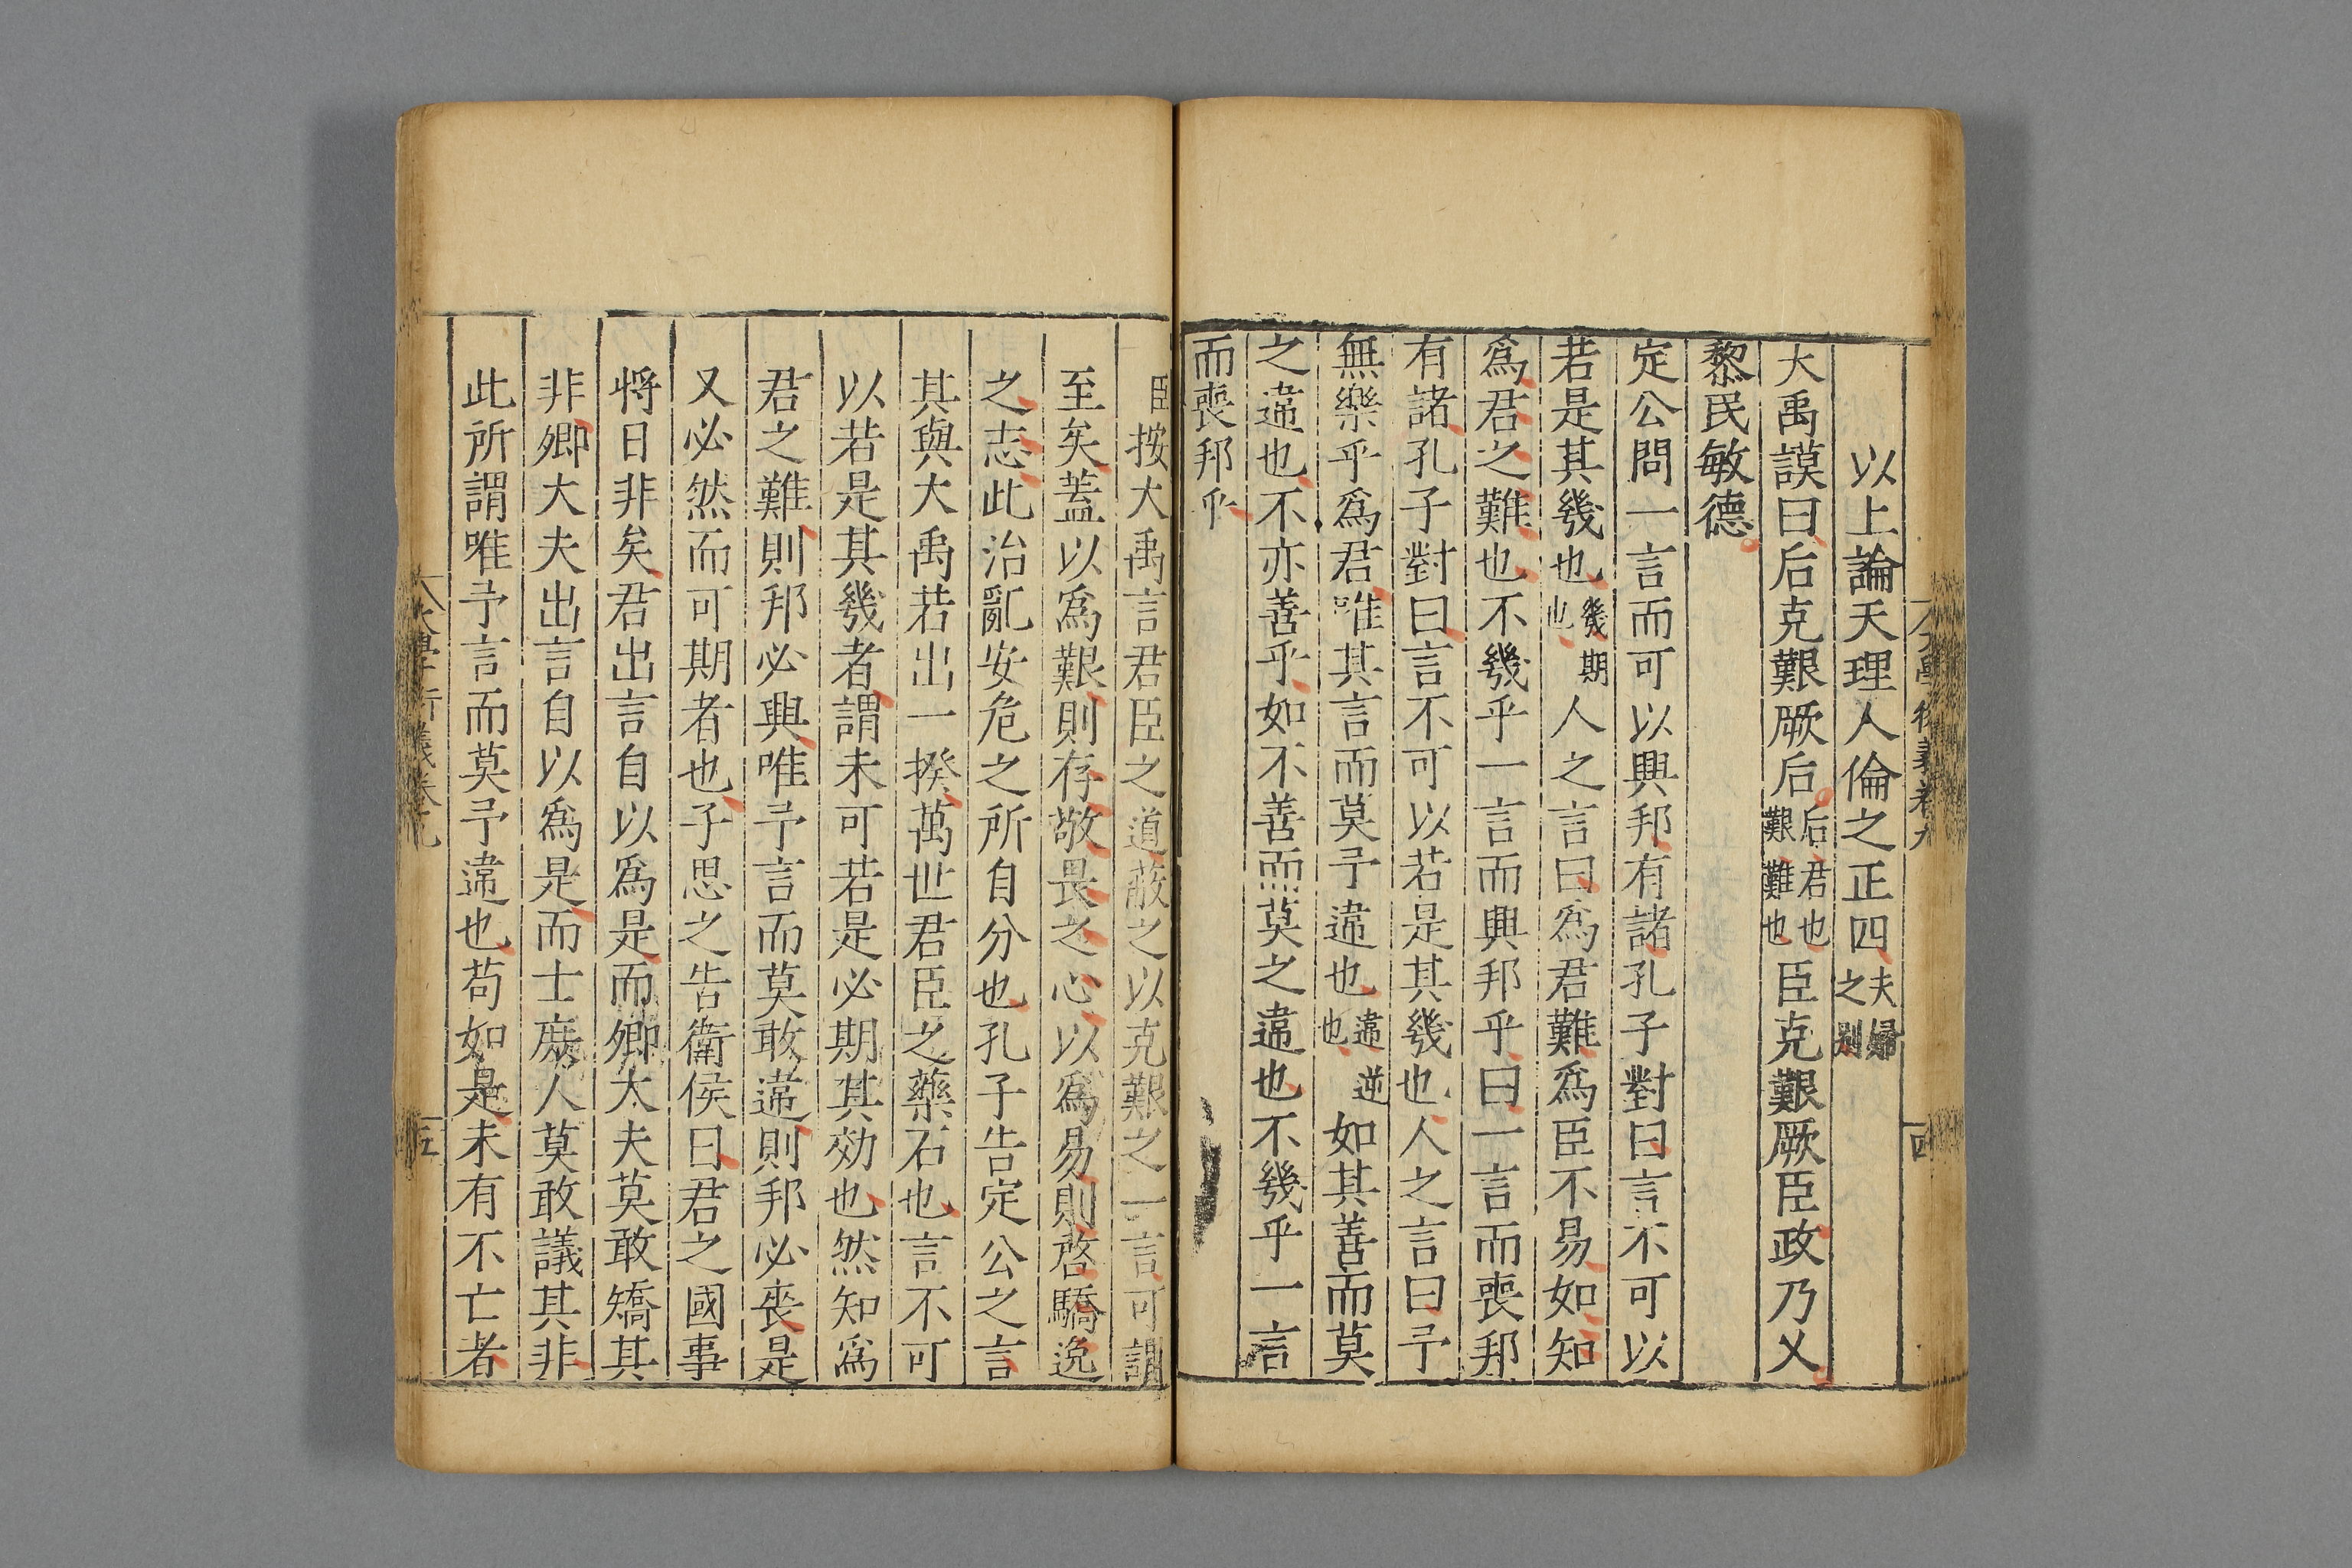 以上論天理人倫之正四夫婦之別
大禹謨曰后克艱厥后后君也艱難也臣克艱厥臣政乃乂
黎民敏德
定公問一言而可以興邦有諸孔子對曰言不可以
若是其幾也幾期也人之言曰爲君難爲臣不易如知
爲君之難也不幾乎一言而興邦乎曰一言而喪邦
有諸孔子對曰言不可以若是其幾也人之言曰予
無樂乎爲君唯其言而莫予違也違逆也如其善而莫
之違也不亦善乎如不善而莫之違也不幾乎一言
而喪邦乎
臣按大禹言君臣之道蔽之以克艱之一言可謂
至矣蓋以爲艱則存敬畏之心以爲易則啓驕逸
之志此治亂安危之所自分也孔子告定公之言
其與大禹若出一揆萬世君臣之藥石也言不可
以若是其幾者謂未可若是必期其効也然知爲
君之難則邦必興唯予言而莫敢違則邦必喪是
又必然而可期者也子思之告衛侯曰君之國事
將日非矣君出言自以爲是而卿大夫莫敢矯其
非卿大夫出言自以爲是而士庶人莫敢議其非
此所謂唯予言而莫予違也苟如是未有不亡者
大學衍義卷九
五